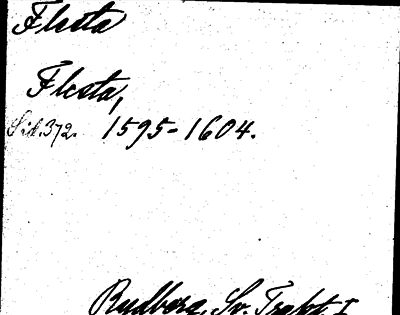 Flesta
Flesta,
Sid. 372. 1595-1604.
Rudberg, Sv. Trakt I